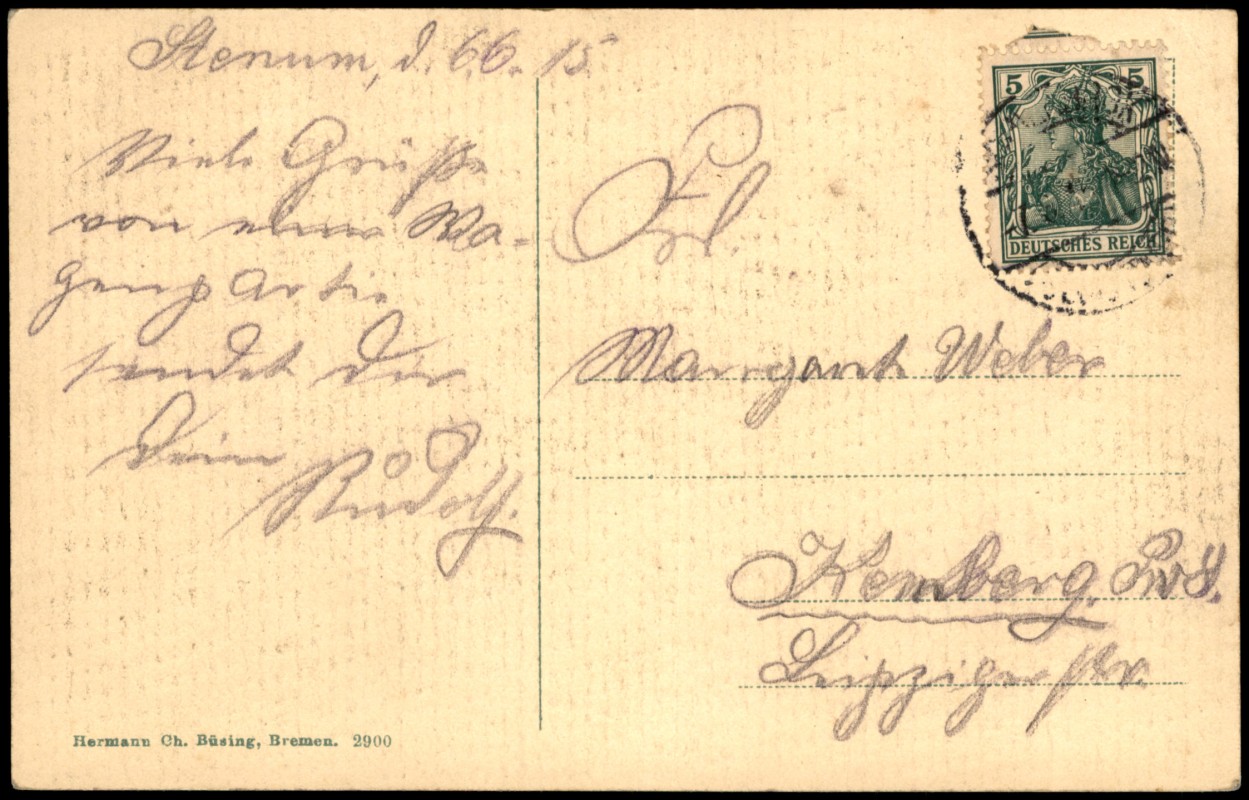 Stenum, d. 6.6. 15
Viele Grüße
von einer Wa-
genpartie
sendet Dir
Dein
Rudolf.
Frl
Margarete Weber
Kemberg.
Leipzigerstr.
5 5
DEUTSCHES REICH
Hermann Ch. Büsing, Bremen. 2900